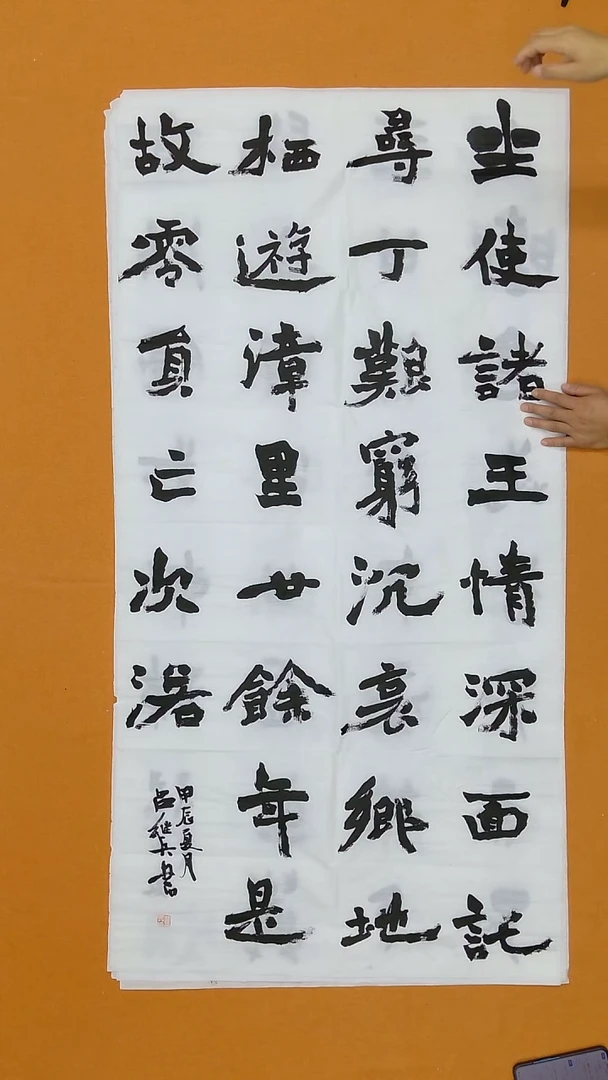 坐使諸王情深面託
尋丁艱窮沉哀鄉地
栖遊漳里廿餘年是
故零真亡次
甲辰夏月
兵書